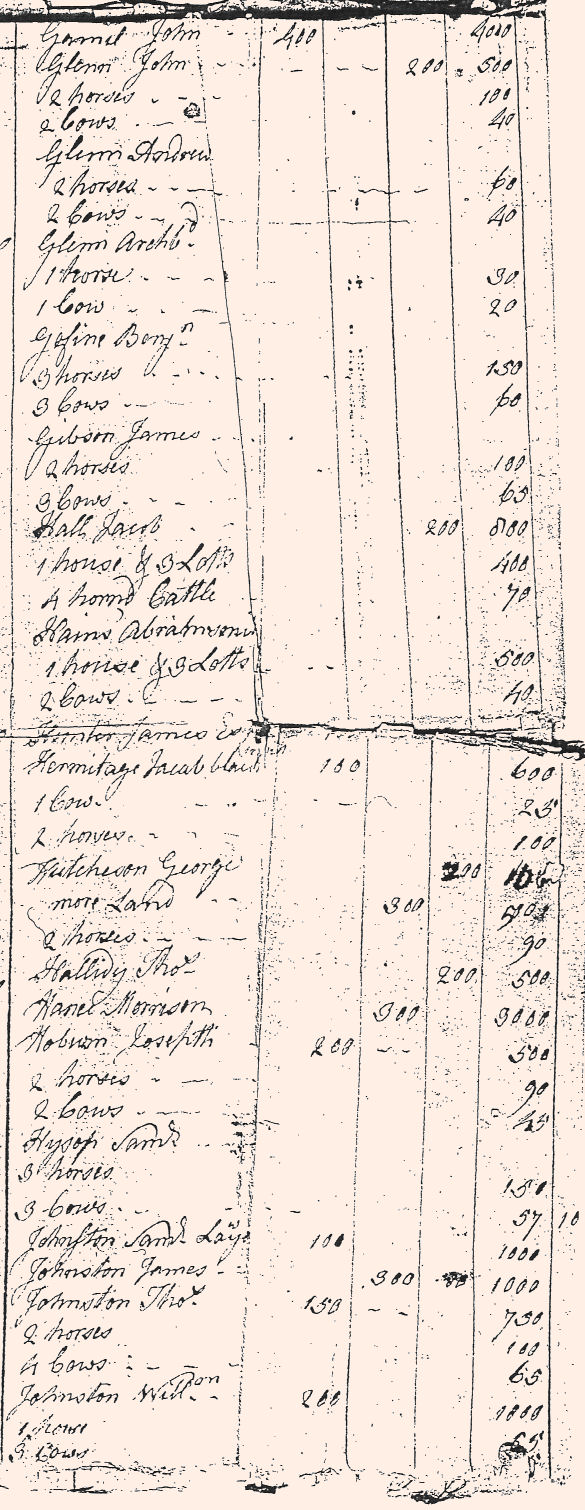 Gamil John - 400 4000
Glenn John - - - - - 200 - 500
2 horses - - - 100
2 Cows - - - 40
Glenn Andrew
2 horses - - - 60
2 Cows - - 40
Glenn Archbd
1 horse - - - 30
1 Cow - - - 20
Benjn
3 horses - - - 150
3 Cows - - 60
Gibson James - -
2 horses 100
3 Cows - - - 65
Hall Jacob - 200 800
1 house & 3 Lotts 400
4 hornd Cattle - 70
Hains
1 house & 3 Lotts - - 500
2 Cows - - - 40
Hunter James Esqr
Hermitage Jacob 100 600
1 Cow - - - 25
2 horses - - - 100
Hutcheson George 200
more Land - - 300
2 horses - - - 90
Hallidy Thos 200 500
Morrison 300 3000
Hoburn Joseph - 200 - - 500
2 horses - - 90
2 Cows - - 45
Hysop Saml - -
3 horses 150
3 Cows - - 57 10
Johnston Saml 100 1000
Johnston James - - 300 1000
Johnston Thos - 150 - - 750
2 horses 100
4 Cows - - - 65
Johnston Willm - 200 1000
1
3 Cows